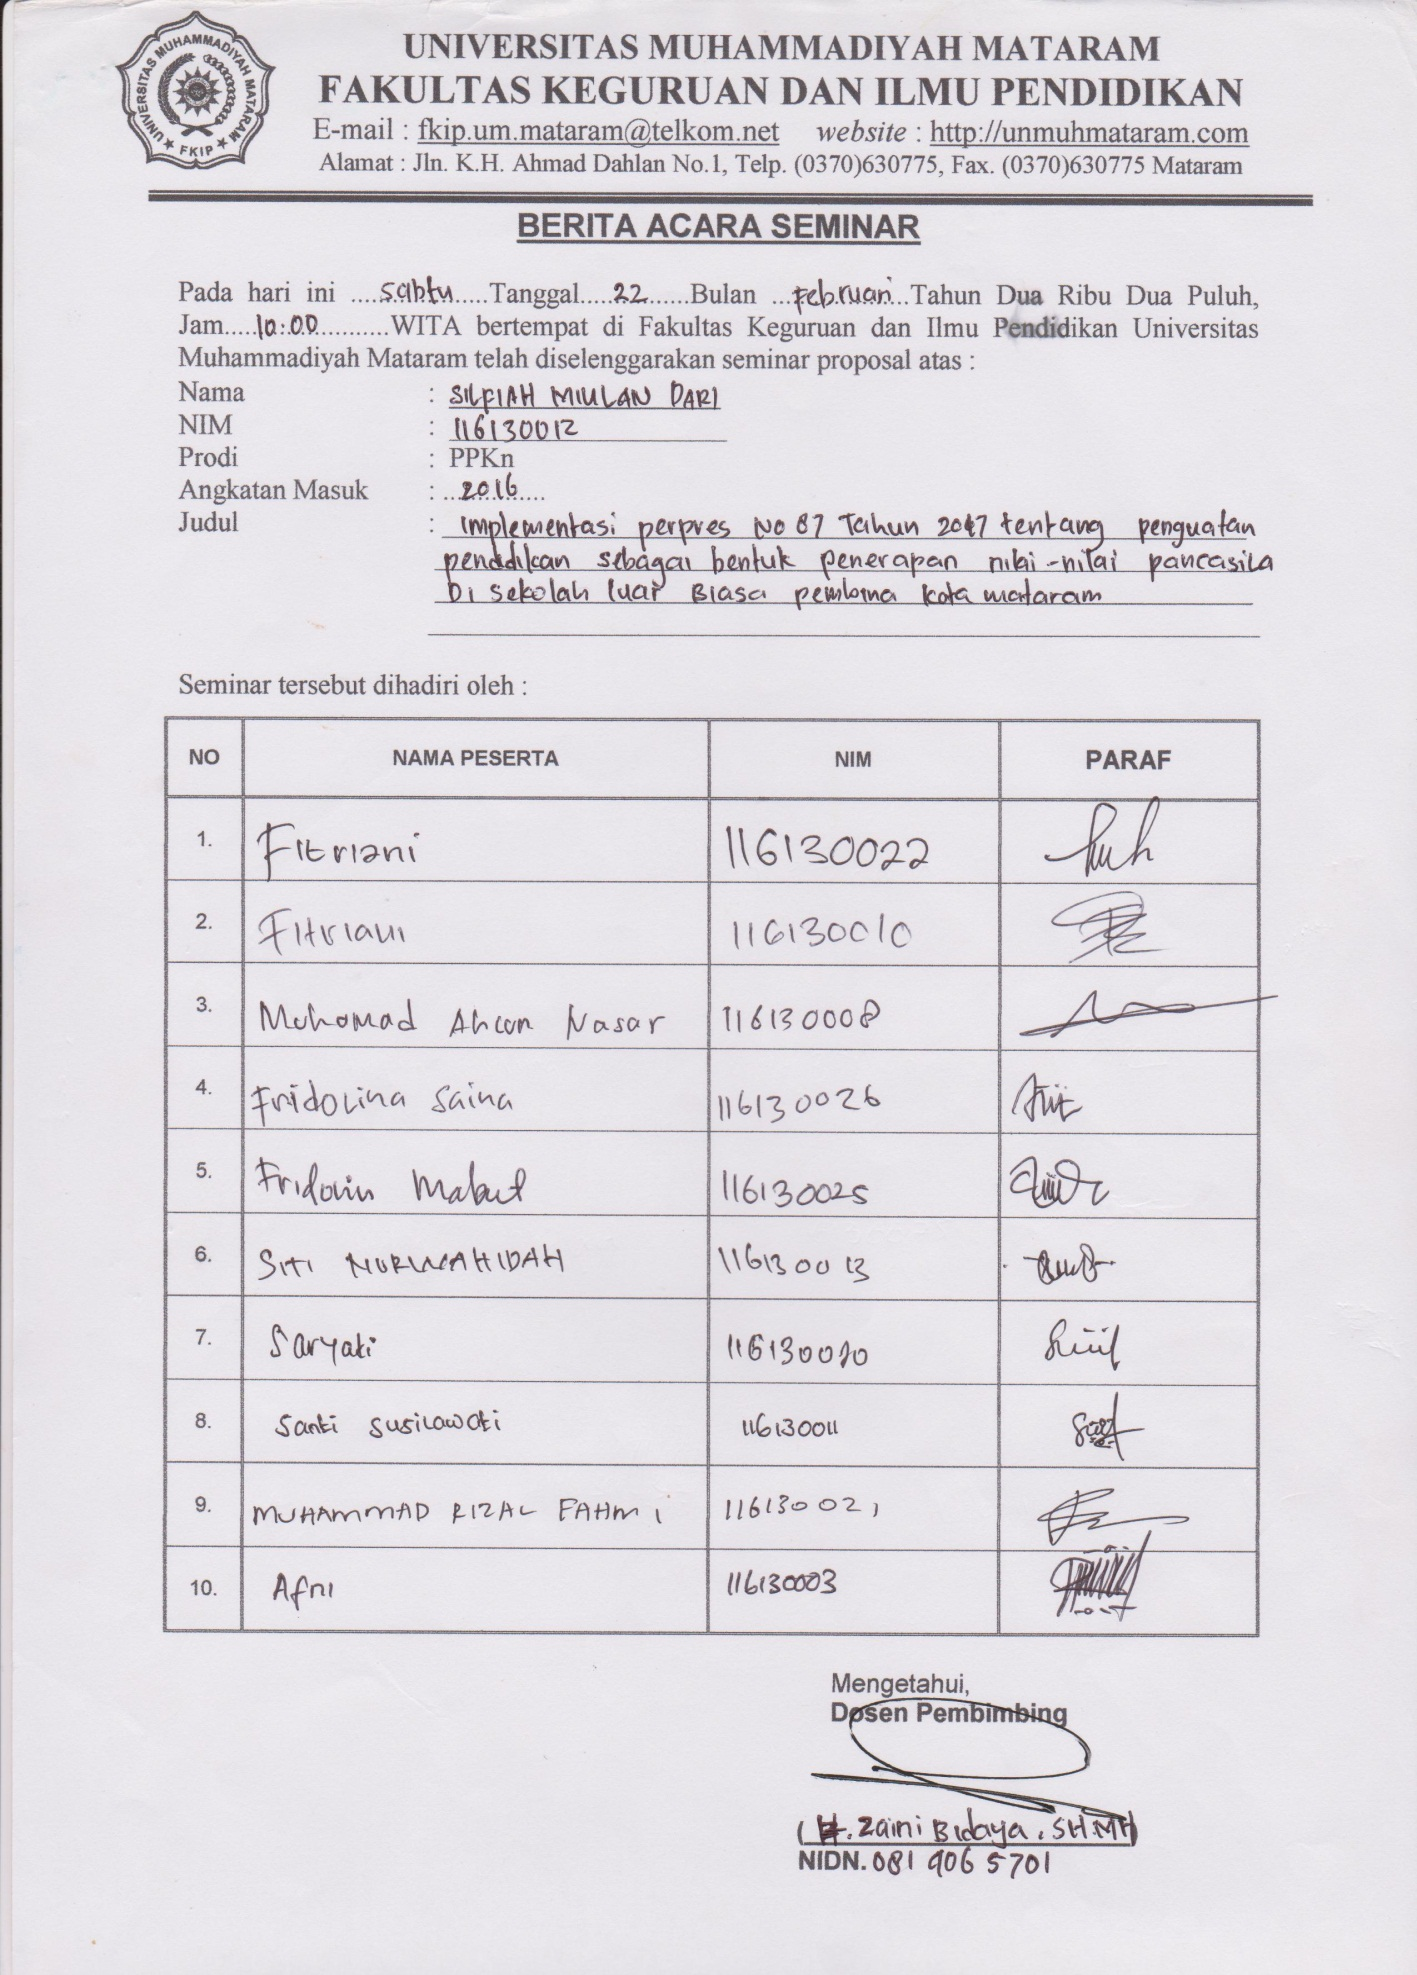 UNIVERSITAS MUHAMMADIYAH MATARAM
FKIP
UNIVERSITAS MUHAMMADIYAH MATARAM
FAKULTAS KEGURUAN DAN ILMU PENDIDIKAN
E-mail : fkip.um.mataram@telkom.net website : http://unmuhmataram.com
Alamat : Jln. K.H. Ahmad Dahlan No.1, Telp. (0370)630775, Fax. (0370)630775 Mataram
BERITA ACARA SEMINAR
Pada hari ini ....Sabtu.....Tanggal.....22......Bulan ...Februari...Tahun Dua Ribu Dua Puluh,
Jam....10:00...........WITA bertempat di Fakultas Keguruan dan Ilmu Pendidikan Universitas
Muhammadiyah Mataram telah diselenggarakan seminar proposal atas :
Nama : SILFIAH MIULAN DARI
NIM : 116130012
Prodi : PPKn
Angkatan Masuk : ...2016....
Judul : Implementasi perpres No 87 Tahun 2017 tentang penguatan
pendidikan sebagai bentuk penerapan nilai-nilai pancasila
Di sekolah luar Biasa pembina kota mataram
Seminar tersebut dihadiri oleh :
NO NAMA PESERTA NIM PARAF
1. Fitriani 116130022
2. Fitriani 116130010
3. Muhamad Ahcan Nasar 116130008
4. Fridolina Saina 116130026
5. Fridolin Mabut 116130025
6. SITI NURWAHIDAH 116130013
7. Saryati 116130020
8. Santi Susilawati 116130011
9. MUHAMMAD RIZAL FAHMI 116130021
10. Afni 116130003
Mengetahui,
Dosen Pembimbing
( H. Zaini Bidaya, SH.MH)
NIDN. 081 906 5701